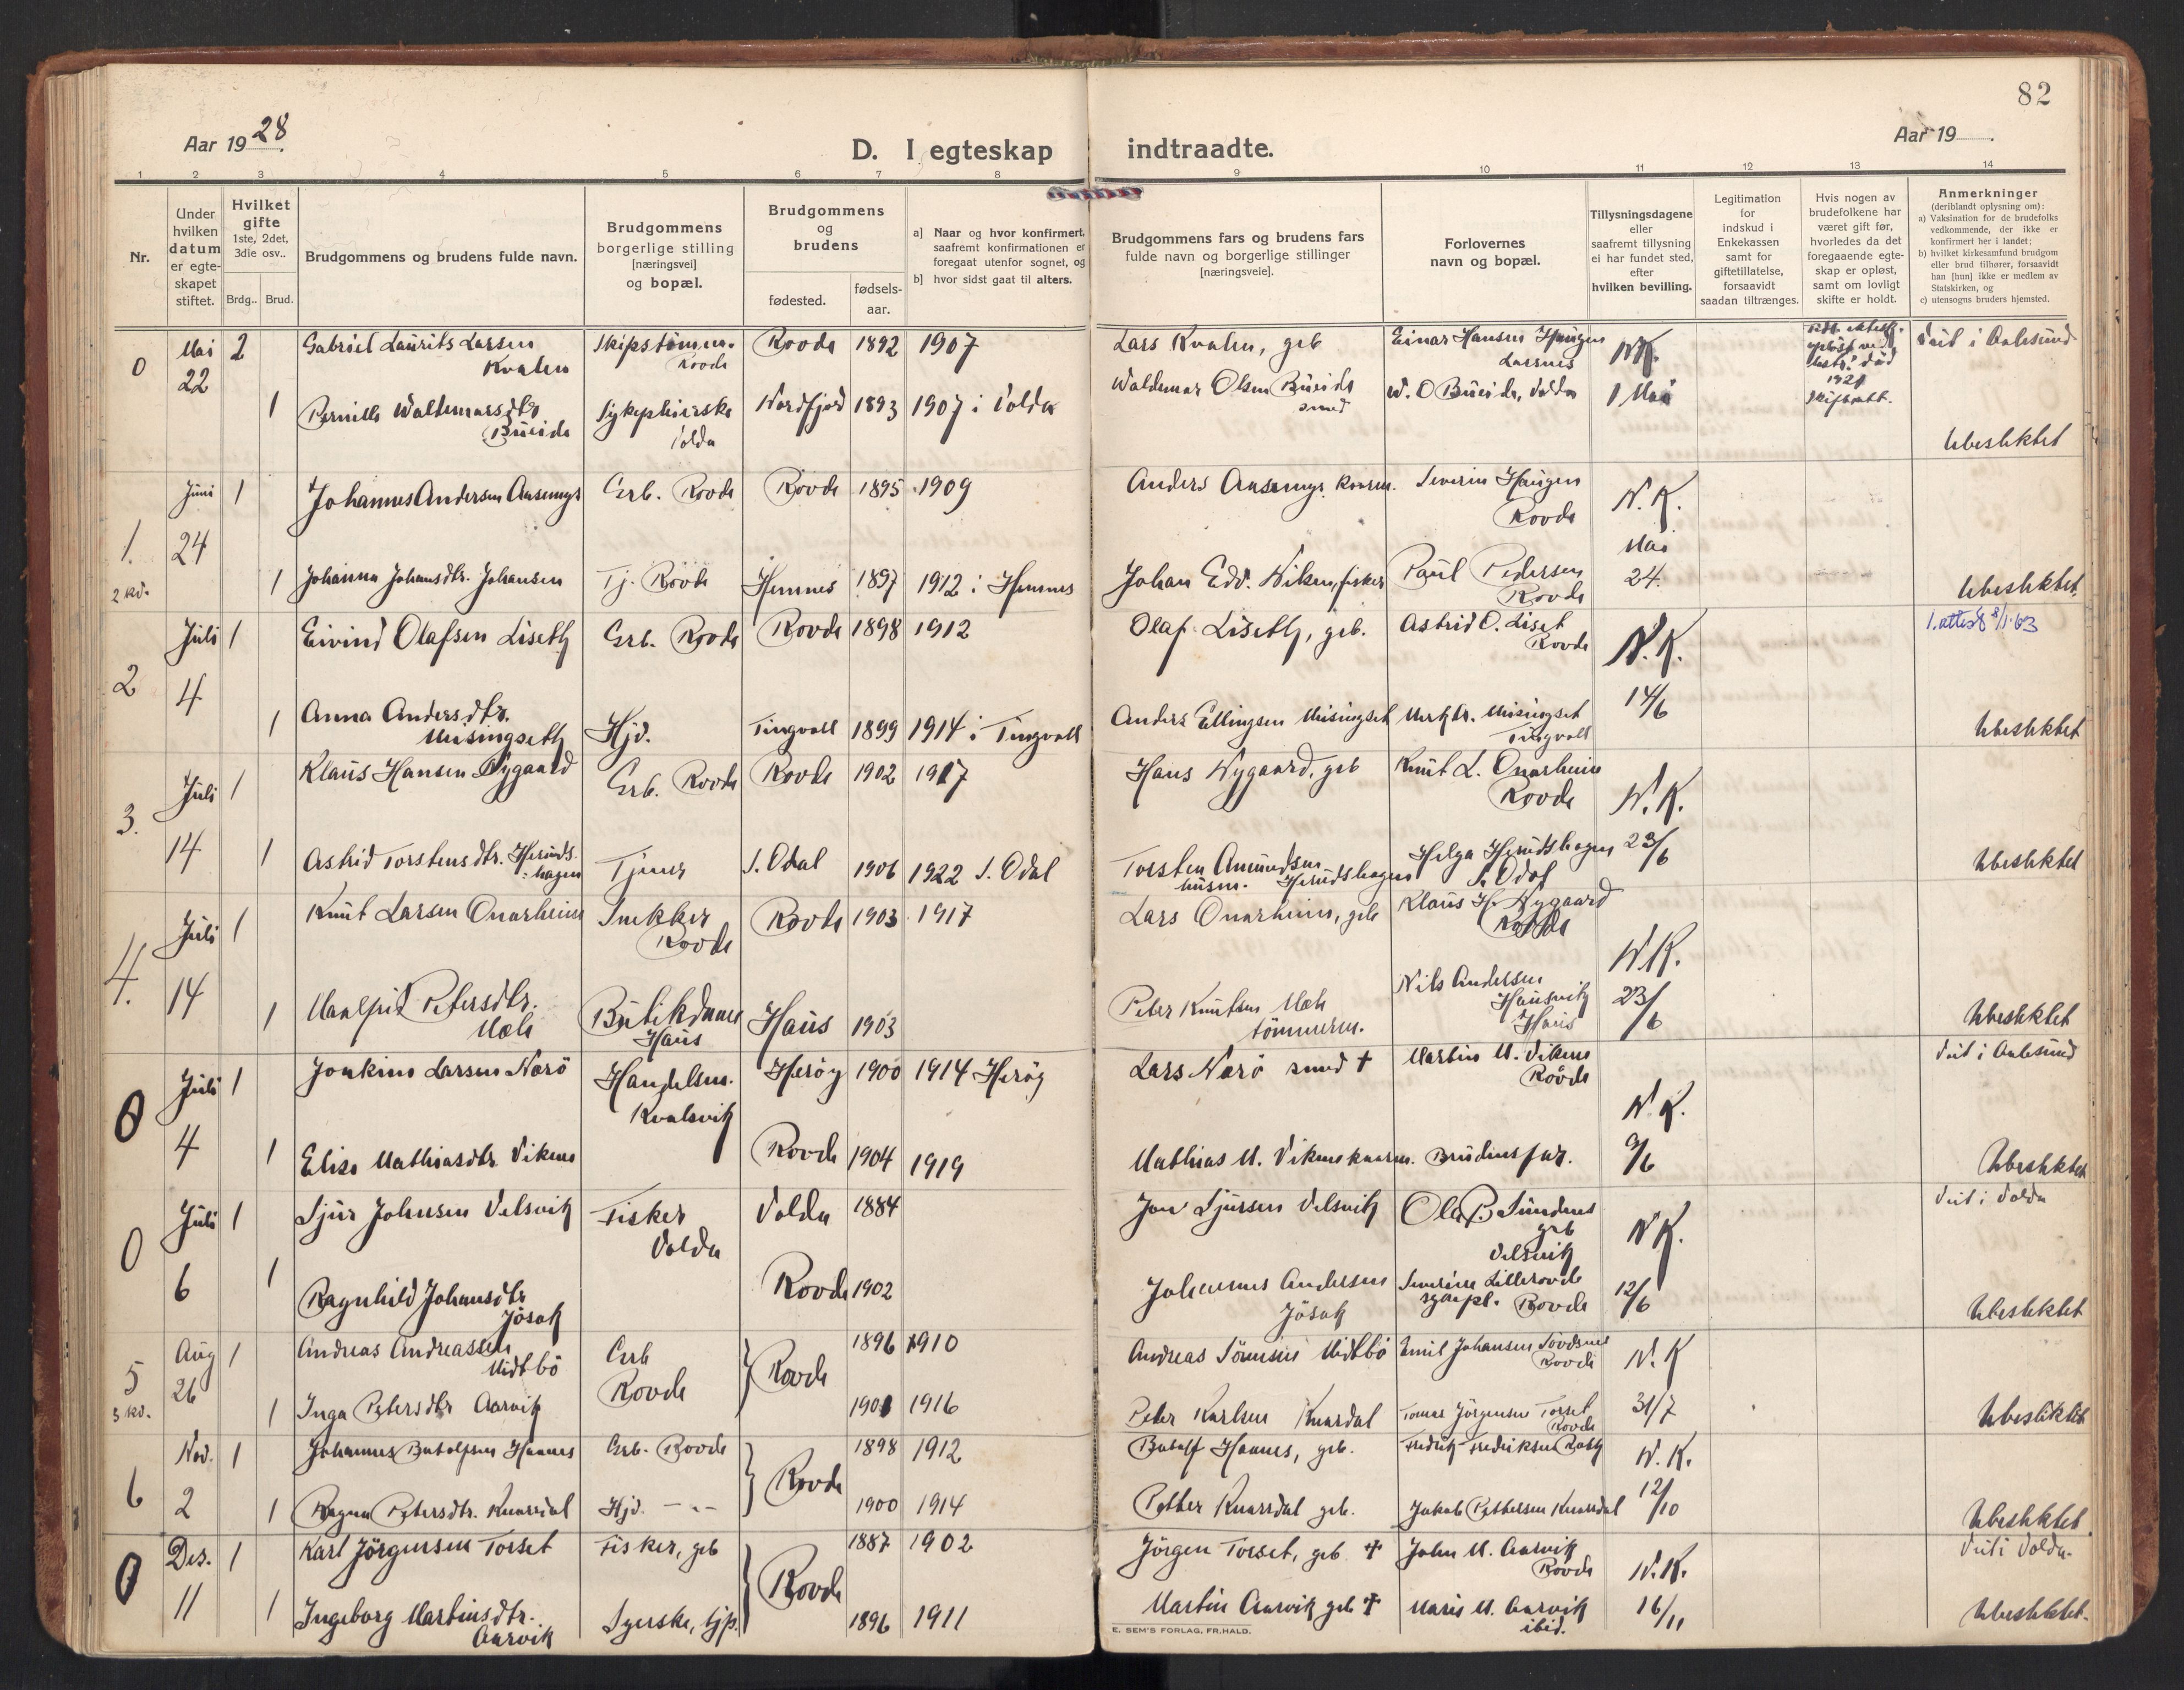 82
Aar 1928.
D. I egteskap indtraadte.
Aar 19
1 2 3 4 5 6 7 8 9 10 11 12 13 14
Nr.
Under
hvilken
datum
er egte-
skapet
stiftet.
Hvilket
gifte
1ste, 2det,
3die osv..
Brdg.. Brud.
Brudgommens og brudens fulde navn.
Brudgommens
borgerlige stilling
[næringsvei]
og bopæl.
Brudgommens
og
brudens
fødested.
fødsels-
aar.
a] Naar og hvor konfirmert,
saafremt konfirmationen er
foregaat utenfor sognet, og
b] hvor sidst gaat til alters.
Brudgommens fars og brudens fars
fulde navn og borgerlige stillinger
[næringsveie].
Forlovernes
navn og bopæl.
Tillysningsdagene
eller
saafremt tillysning
ei har fundet sted,
efter
hvilken bevilling.
Legitimation
for
indskud i
Enkekassen
samt for
giftetillatelse,
forsaavidt
saadan tiltrænges.
Hvis nogen av
brudefolkene har
været gift før,
hvorledes da det
foregaaende egte-
skap er opløst,
samt om lovligt
skifte er holdt.
Anmerkninger
(deriblandt oplysning om):
a) Vaksination for de brudefolks
vedkommende, der ikke er
konfirmert her i landet;
b) hvilket kirkesamfund brudgom
eller brud tilhører, forsaavidt
han [hun] ikke er medlem av
Statskirken, og
c) utensogns bruders hjemsted.
0 Mai 22 2 Gabriel Laurits Larsen Kvalen Skipstømm. Rovde Rovde 1892 1907 Lars Kvalen, grb Einar Hansen Haugen Larsnes N.K. Viet i Aalesund
1 Pernille Waldemarsdtr Bueide Sykepleierske Volda Nordfjord 1893 1907 i Volda Waldemar Olsen Bueide smed W. O Bueide, Volda 1 Mai 1921 Ubeslektet
1. 2 kd. Juni 24 1 Johannes Andersen Aasemyr Grb. Rovde Rovde 1895 1909 Anders Aasemyr kaarm. Severin Haugen Rovde N.K.
1 Johanna Johansdtr. Johansen Tj. Rovde Hemnes 1897 1912 i Hemnes Johan Edv. Wiken, fisker Paul Pedersen Rovde Mai 24. Ubeslektet.
2 Juli 4 1 Eivind Olafsen Liseth Grb. Rovde Rovde 1898 1912 Olaf Liseth, grb. Astrid O. Liset Rovde N.K. 1. attest 8/1-63
1 Anna Andersdtr. Meisingseth Hjd. Tingvoll 1899 1914 i Tingvoll Anders Ellingsen Meisingset Meisingset Tingvoll 14/6 Ubeslektet
3. Juli 14 1 Klaus Hansen Nygaard Grb. Rovde Rovde 1902 1917 Hans Nygaard, grb Knut L. Onarheim Rovde N.K.
1 Astrid Torstensdtr. Herudshagen Tjener S. Odal 1906 1922 S. Odal Torsten Amundsen Herudshagen husm. Helga Herudshagen S. Odal 23/6 Ubeslektet
4. Juli 14 1 Knut Larsen Onarheim Snekker Rovde Rovde 1903 1917 Lars Onarheim, grb Klaus H. Nygaard Rovde N.K.
1 Petersdtr. Mæle Haus Haus 1903 Peter Knutsen Mæle tømmerm. Nils Andersen Hausvik Haus 23/6 Ubeslektet
0 Juli 4 1 Joakim Larsen Nærö Handelsm. Kvalsvik Herøy 1900 1914 Herøy Lars Nærö smed † Martin M. Vikene Rovde N.K. Viet i Aalesund
1 Elise Mathiasdtr. Vikene Rovde 1904 1919 Mathias M. Vikene kaarm. Brudens far. 9/6 Ubeslektet
0 Juli 6 1 Sjur Johnsen Velsvik Fisker Volda Volda 1884 Jon Sjursen Velsvik Ola P. Sundnes grb Velsvik N.K. Viet i Volda
1 Ragnhild Johansdtr Jøsok Rovde 1902 Johannes Andersen Jøsok Severine Lillerovde Rovde 12/6 Ubeslektet
5 3 kd. Aug 26 1 Andreas Andreassen Midtbö Grb Rovde Rovde 1896 1910 Andreas Midtbö Emil Johansen Rovde N.K
1 Inga Petersdtr Aarvik 1901 1916 Peter Karlsen Knardal Jörgensen Torset Rovde 31/7 Ubeslektet
6 Nov. 2 1 Johannes Botolfsen Haanes Grb. Rovde Rovde 1898 1912 Botolf Haanes, grb. Fredrik Fredriksen N.K.
1 Ragna Petersdtr. Knardal Hjd. 1900 1914 Petter Knardal grb. Jakob Pettersen Knardal 12/10 Ubeslektet
0 Des. 11 1 Karl Jörgensen Torset Fisker, grb Rovde 1887 1902 Jörgen Torset, grb † John M. Aarvik Rovde N.K. Viet i Volda.
1 Ingeborg Martinsdtr. Aarvik Syerske, 1896 1911 Martin Aarvik grb † Marie M. Aarvik ibid. 16/11 Ubeslektet.
E. SEM'S FORLAG, FR.HALD.